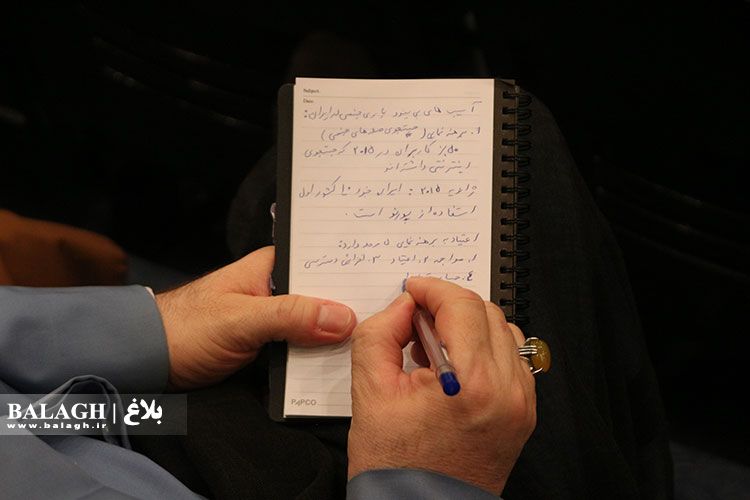 Subject:
Date:
آسیب های بی بند و باری جنسی در ایران:
۱. برهنه نمایی (جستجوی صحنه های جنسی)
۵۰٪ کاربران در ۲۰۱۵ جستجوی
اینترنتی داشته اند
ژانویه ۲۰۱۵: ایران جزو ۱۰ کشور اول
استفاده از پورنو است.
اعتیاد به برهنه نمایی ۵ مرحله دارد:
۱. مواجهه ۲. اعتیاد ۳. افزایش دسترسی
۴.
PAPCO
BALAGH | بلاغ
www.balagh.ir